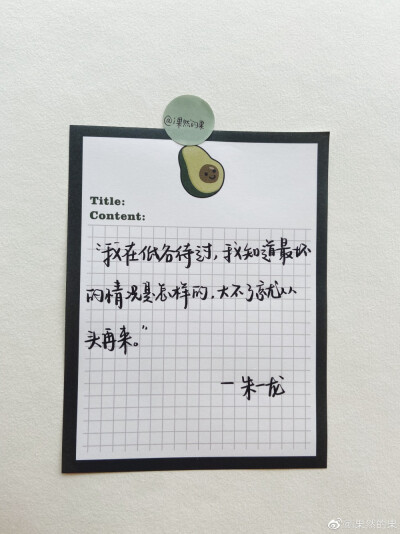 @果然的果
Title:
Content:
“我在低谷待过，我知道最坏
的情况是怎样的，大不了就从
头再来。”
—朱一龙
@果然的果